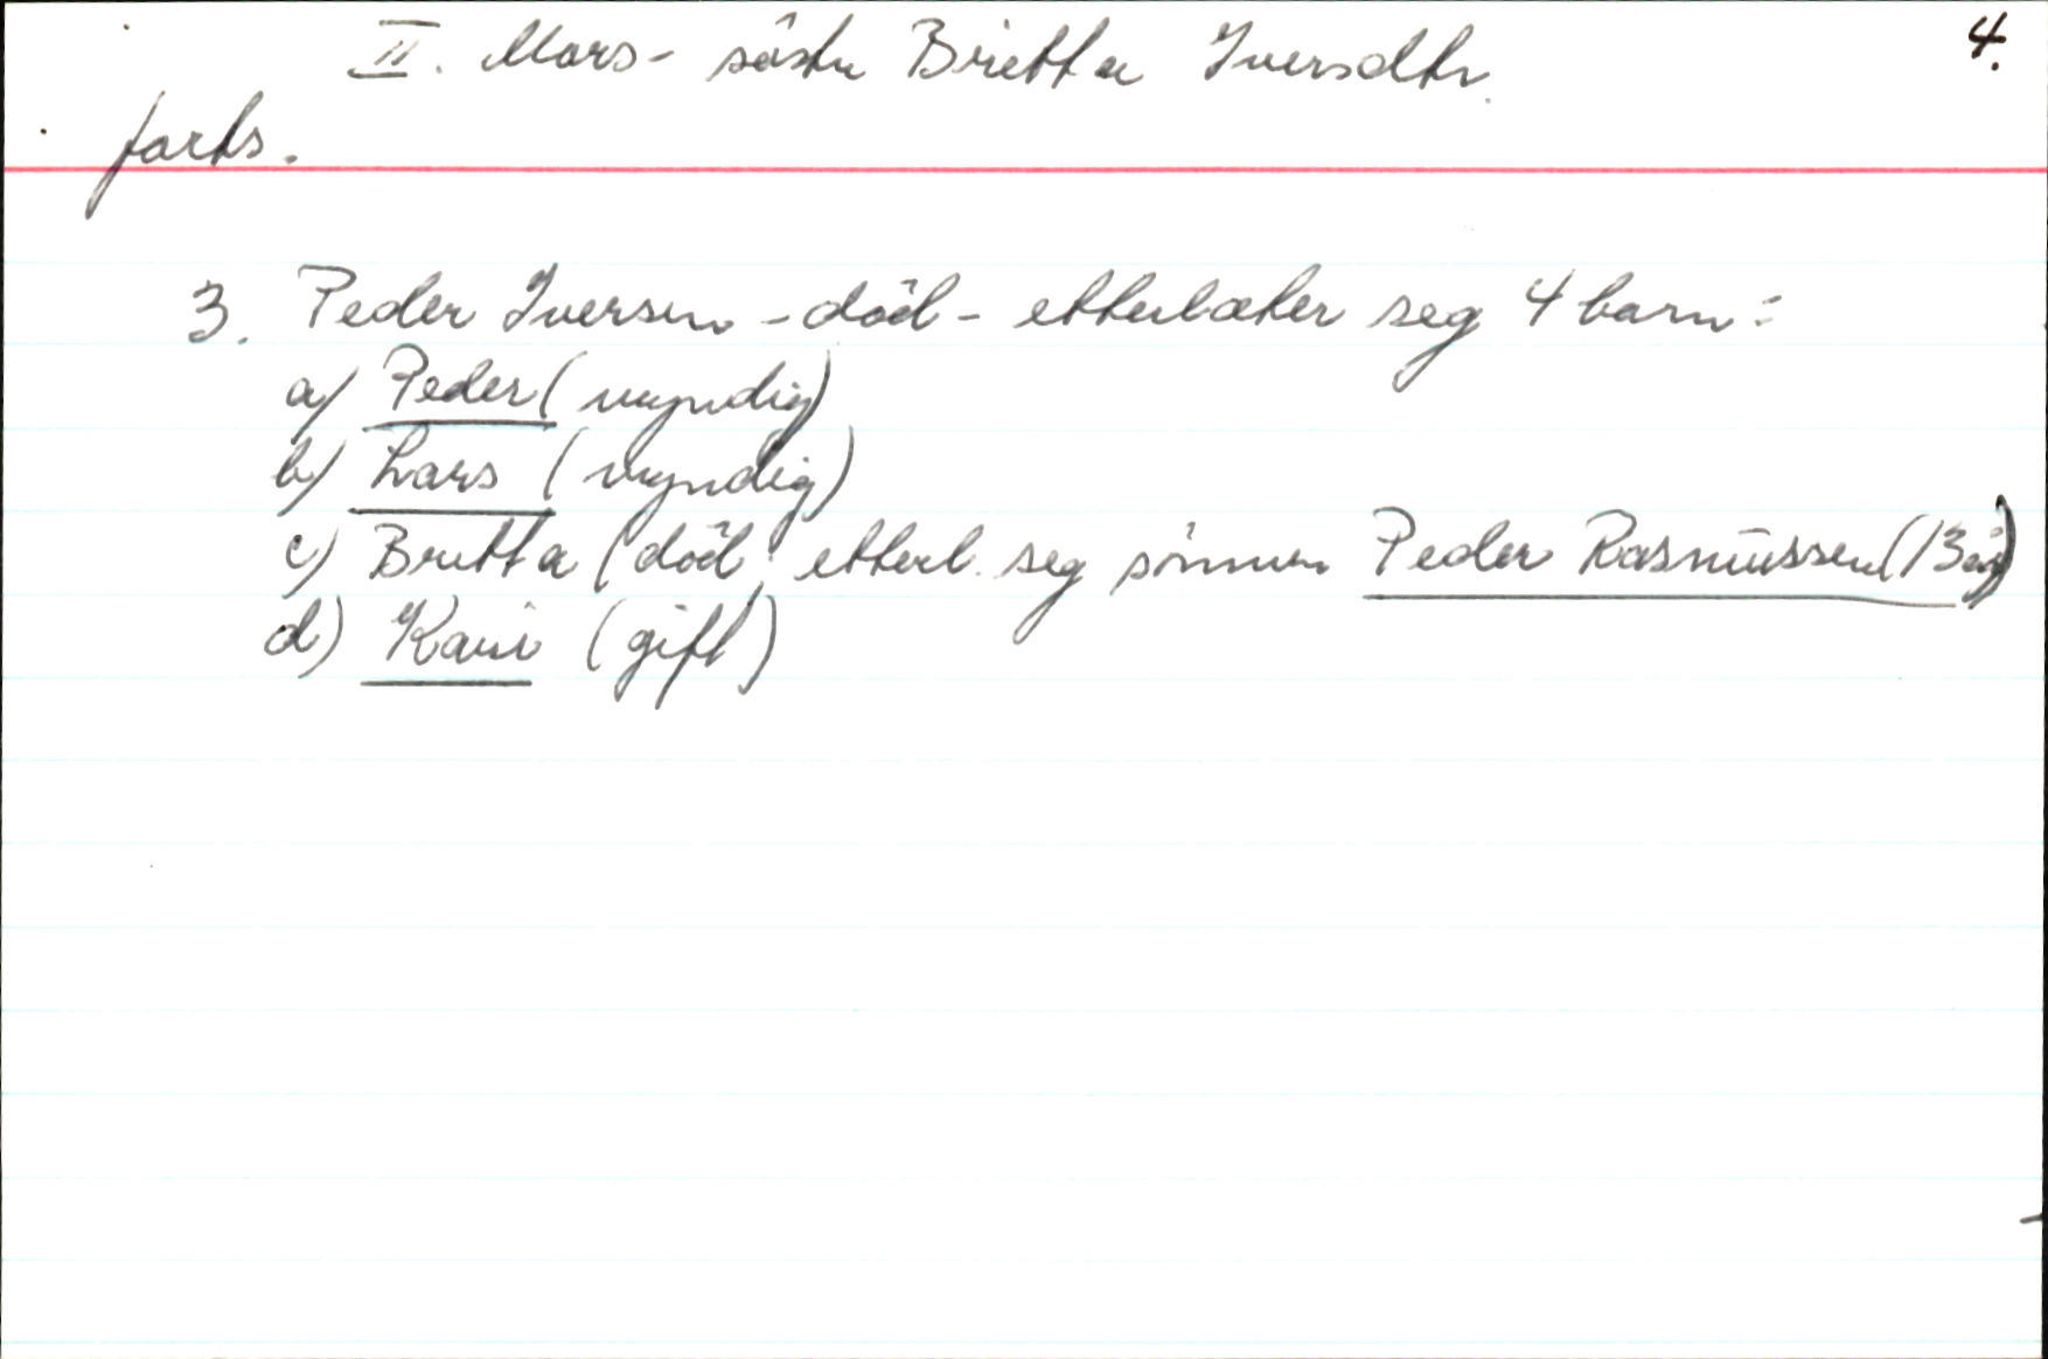 4.
II. Mors- söster Britta Iversdtr.
forts.
3. Peder Iversen - död - etterlater seg 4 barn:
a) Peder (myndig)
b) Lars (myndig)
c) Britta (död, etterl. seg sönnen Peder Rasmussen (13 år)
d) Kari (gift)